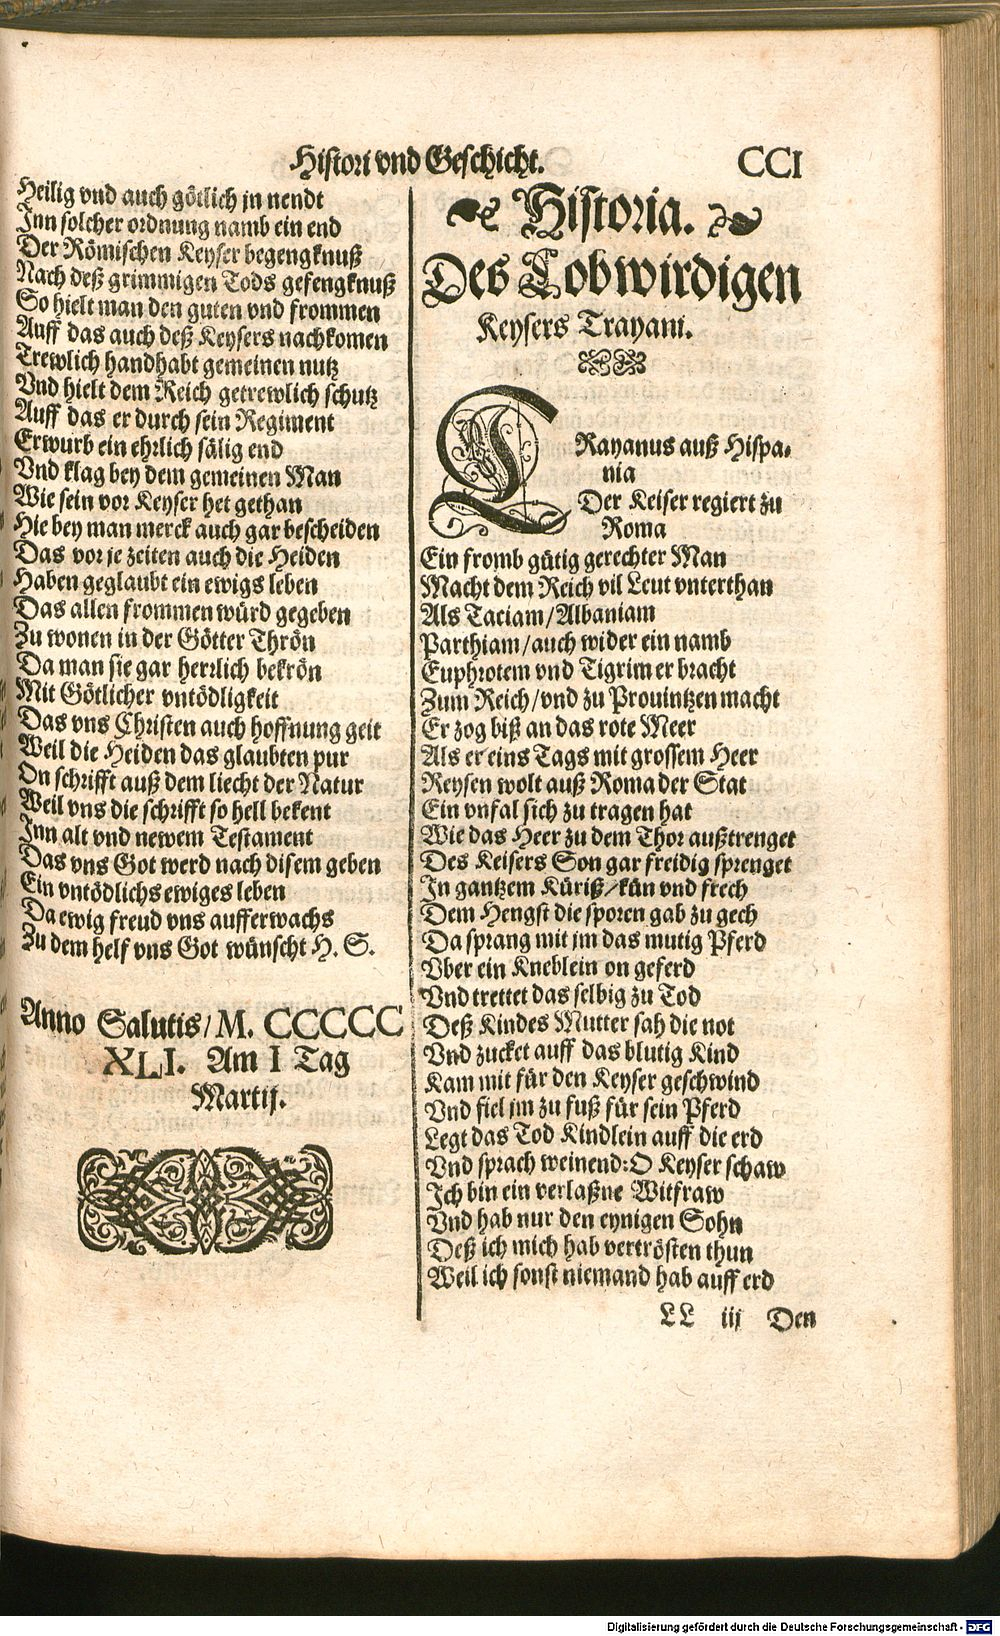 Histori vnd Geschicht. CCI
Heilig vnd auch götlich jn nendt
Inn solcher ordnung namb ein end
Der Römischen Keyser begengknuß
Nach deß grimmigen Tods gefengknuß
So hielt man den guten vnd frommen
Auff das auch deß Keysers nachkomen
Trewlich handhabt gemeinen nutz
Vnd hielt dem Reich getrewlich schutz
Auff das er durch sein Regiment
Erwurb ein ehrlich sälig end
Vnd klag bey dem gemeinen Man
Wie sein vor Keyser het gethan
Hie bey man merck auch gar bescheiden
Das vor je zeiten auch die Heiden
Haben geglaubt ein ewigs leben
Das allen frommen würd gegeben
Zu wonen in der Götter Thrön
Da man sie gar herrlich bekrön
Mit Götlicher vntödligkeit
Das vns Christen auch hoffnung geit
Weil die Heiden das glaubten pur
On schrifft auß dem liecht der Natur
Weil vns die schrifft so hell bekent
Inn alt vnd newem Testament
Das vns Got werd nach disem geben
Ein vntödlichs ewiges leben
Da ewig freud vns aufferwachs
Zu dem helf vns Got wünscht H. S.
Anno Salutis/ M. CCCCC
XLI. Am I Tag
Martij.
Historia.
Des Lobwirdigen
Keysers Trayani.
TRayanus auß Hispa-
nia
Der Keiser regiert zu
Roma
Ein fromb gütig gerechter Man
Macht dem Reich vil Leut vnterthan
Als Taciam/ Albaniam
Parthiam/ auch wider ein namb
Euphrotem vnd Tigrim er bracht
Zum Reich/ vnd zu Prouintzen macht
Er zog biß an das rote Meer
Als er eins Tags mit grossem Heer
Reysen wolt auß Roma der Stat
Ein vnfal sich zu tragen hat
Wie das Heer zu dem Thor außtrenget
Des Keisers Son gar freidig sprenget
In gantzem Küriß/ kün vnd frech
Dem Hengst die sporen gab zu gech
Da sprang mit jm das mutig Pferd
Vber ein Kneblein on geferd
Vnd trettet das selbig zu Tod
Deß Kindes Mutter sah die not
Vnd zucket auff das blutig Kind
Kam mit für den Keyser geschwind
Vnd fiel jm zu fuß für sein Pferd
Legt das Tod Kindlein auff die erd
Vnd sprach weinend: O Keyser schaw
Ich bin ein verlaßne Witfraw
Vnd hab nur den eynigen Sohn
Deß ich mich hab vertrösten thun
Weil ich sonst niemand hab auff erd
LL iij Den
Digitalisierung gefördert durch die Deutsche Forschungsgemeinschaft - DFG